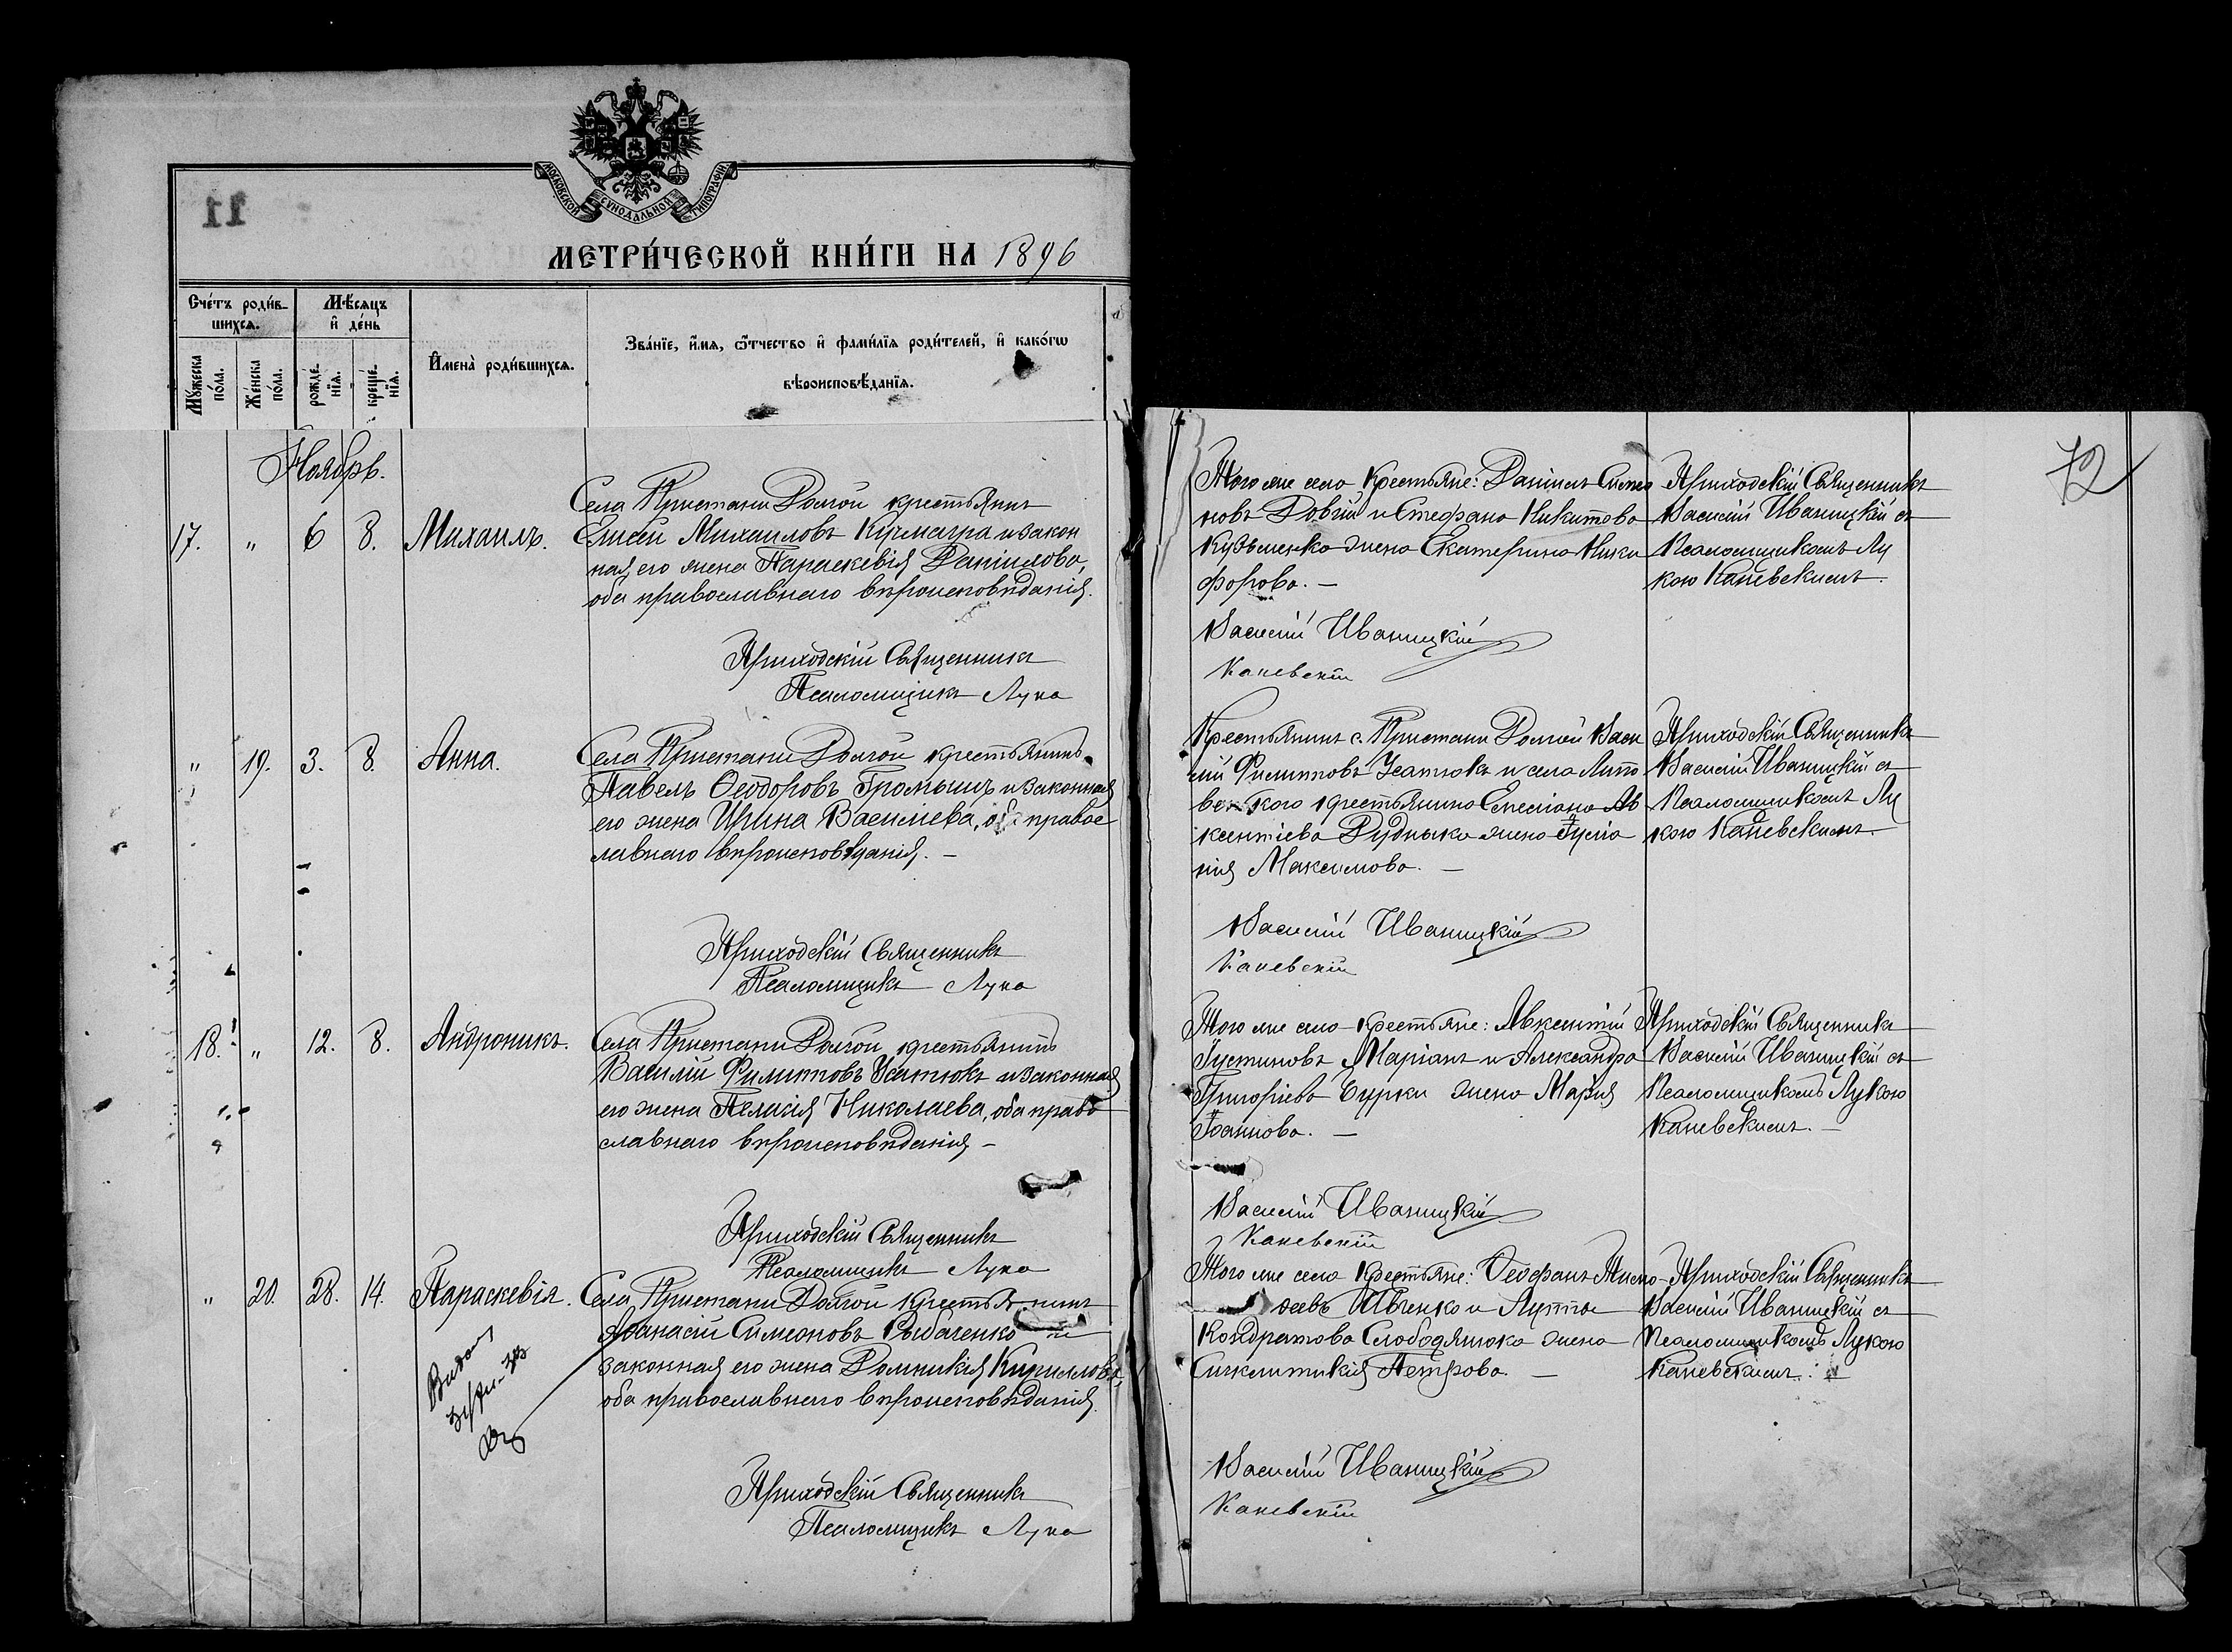 МОСКОВСКОЙ СѴНОДАЛЬНОЙ ТИПОГРАФІИ
11
МЕТРИ́ЧЕСКОЙ КНИ́ГИ НА 1896
Сче́тъ роди́в-
шихсѧ.
Мѣ́сѧцъ
и҆ де́нь
Мꙋ́жеска
по́ла.
Же́нска
по́ла.
рожде́-
нїѧ.
креще́-
нїѧ.
И҆мена̀ роди́вшихсѧ.
Зва́нїе, и҆́мѧ, ѻ҆́тчество и҆ фами́лїѧ роди́телей, и҆ како́гѡ
вѣроисповѣ́данїѧ.
72
Ноябрь.
17. " 6 8. Михаилъ.
Села Пристани Долгой крестьянинъ
Елисей Михаиловъ Кучмагра и закон
ная его жена Параскевія Даніилова,
оба православнаго вѣроисповѣданія.
Приходскій Священникъ
Псаломщикъ Лука
Того же села крестьяне: Даніилъ Симео
новъ Довгій и Стефана Никитова
Кузьменка жена Екатерина Ники
форова. —
Василій Иваницкій
Каневскій
Приходскій Священникъ
Василій Иваницкій съ
Псаломщикомъ Лу
кою Каневскимъ.
" 19. 3. 8. Анна.
Села Пристани Долгой крестьянинъ
Павелъ Ѳеодоровъ Громышъ и законная
его жена Ирина Василіева, оба правос
лавнаго вѣроисповѣданія. —
Приходскій Священникъ
Псаломщикъ Лука
Крестьянинъ с. Пристани Долгой Васи
лій Филипповъ Усатюкъ и села
крестьянина Емеліана Ав
ксентіева Рудныка жена
нія Максимова. —
Василій Иваницкій
Каневскій
Приходскій Священникъ
Василій Иваницкій съ
Псаломщикомъ Лу
кою Каневскимъ.
18. " 12. 8. Андроникъ.
Села Пристани Долгой крестьянинъ
Василій Филипповъ Усатюкъ и законная
его жена Пелагія Николаева, оба право
славнаго вѣроисповѣданія —
Приходскій Священникъ
Псаломщикъ Лука
Того же села крестьяне: Авксентій
Іустиновъ Маріанъ и Александра
Григоріева Бурки жена Марія
Іоаннова. —
Василій Иваницкій
Каневскій
Приходскій Священникъ
Василій Иваницкій съ
Псаломщикомъ Лукою
Каневскимъ. —
" 20. 28. 14. Параскевія.
Села Пристани Долгой крестьянинъ
Аѳанасій Симеоновъ Рыбаченко и
законная его жена Домникія Кириллова,
оба православнаго вѣроисповѣданія.
Приходскій Священникъ
Псаломщикъ Лука
Того же села крестьяне: Ѳеофанъ Тимо
ѳеевъ Ивченко и Луппа
Кондратова Слободянюка жена
Сигклитикія Петрова. —
Василій Иваницкій
Каневскій
Приходскій Священникъ
Василій Иваницкій съ
Псаломщикомъ Лукою
Каневскимъ.